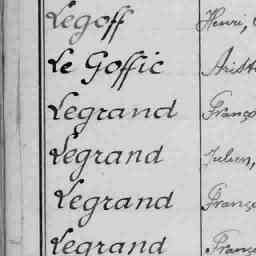 Legoff Henri,
Le Goffic Arist
Legrand Franço
Legrand Julien,
Legrand Franço
Legrand Franço